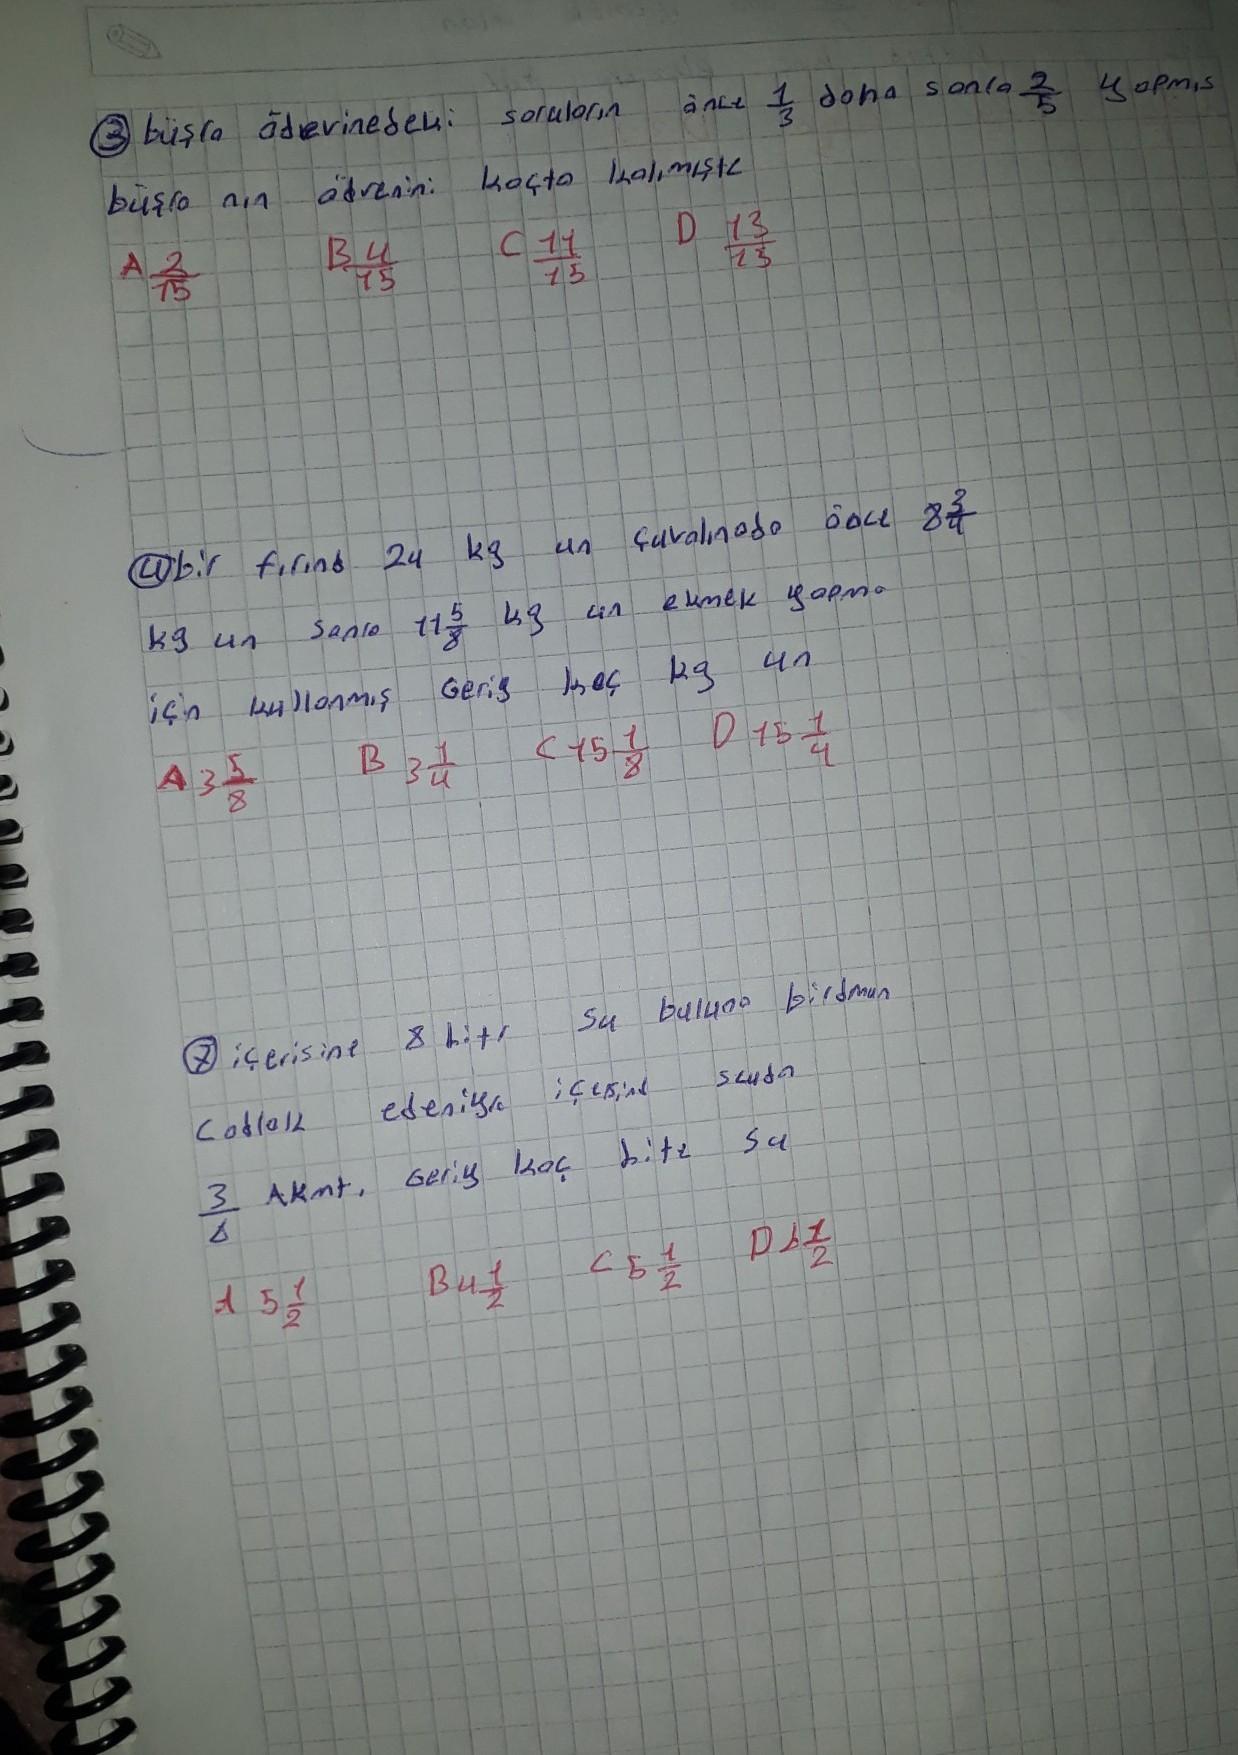 ③ büşra ödevinedeki soruların önce 1/3 daha sonra 2/5 yapmıs
büşra nın ödvenini kaçta kalımıştı
A 2/15 B 4/15 C 11/15 D 13/15
④ bir fırınd 24 kg un çuvalınada önce 8 3/4
kg un sonra 11 5/8 kg un ekmek yapma
için kullanmış Geriy kaç kg un
A 3 5/8 B 3 1/4 C 15 1/8 D 15 1/4
⑦ içerisine 8 litr su buluna birdman
Catlak edeniyle içesind
3/6 Akmt. Geriy kaç lite su
A 5 1/2 B 4 1/2 C 5 1/2 D 6 1/2